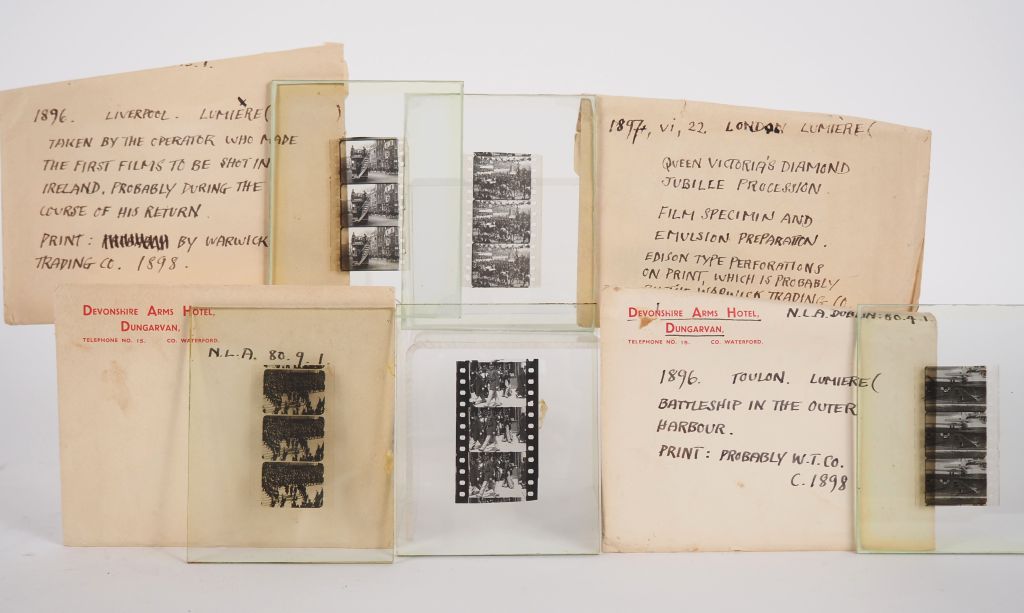 1896. LIVERPOOL. LUMIÈRE(
TAKEN BY THE OPERATOR WHO MADE
THE FIRST FILMS TO BE SHOT IN
IRELAND. PROBABLY DURING THE
COURSE OF HIS RETURN.
PRINT: BY WARWICK
TRADING CO. 1898.
1897, vi, 22. LONDON LUMIÈRE(
QUEEN VICTORIA'S DIAMOND
JUBILEE PROCESSION.
FILM SPECIMIN AND
EMULSION PREPARATION.
EDISON TYPE PERFORATIONS
ON PRINT, WHICH IS PROBABLY
BY THE WARWICK TRADING CO.
DEVONSHIRE ARMS HOTEL,
DUNGARVAN,
TELEPHONE NO. 15. CO. WATERFORD.
N.L.A. 80.9.1
DEVONSHIRE ARMS HOTEL,
DUNGARVAN,
TELEPHONE NO. 15. CO. WATERFORD.
N.L.A. DUBLIN: 80.9.1.
1896. TOULON. LUMIERE(
BATTLESHIP IN THE OUTER
HARBOUR.
PRINT: PROBABLY W.T.CO.
C. 1898